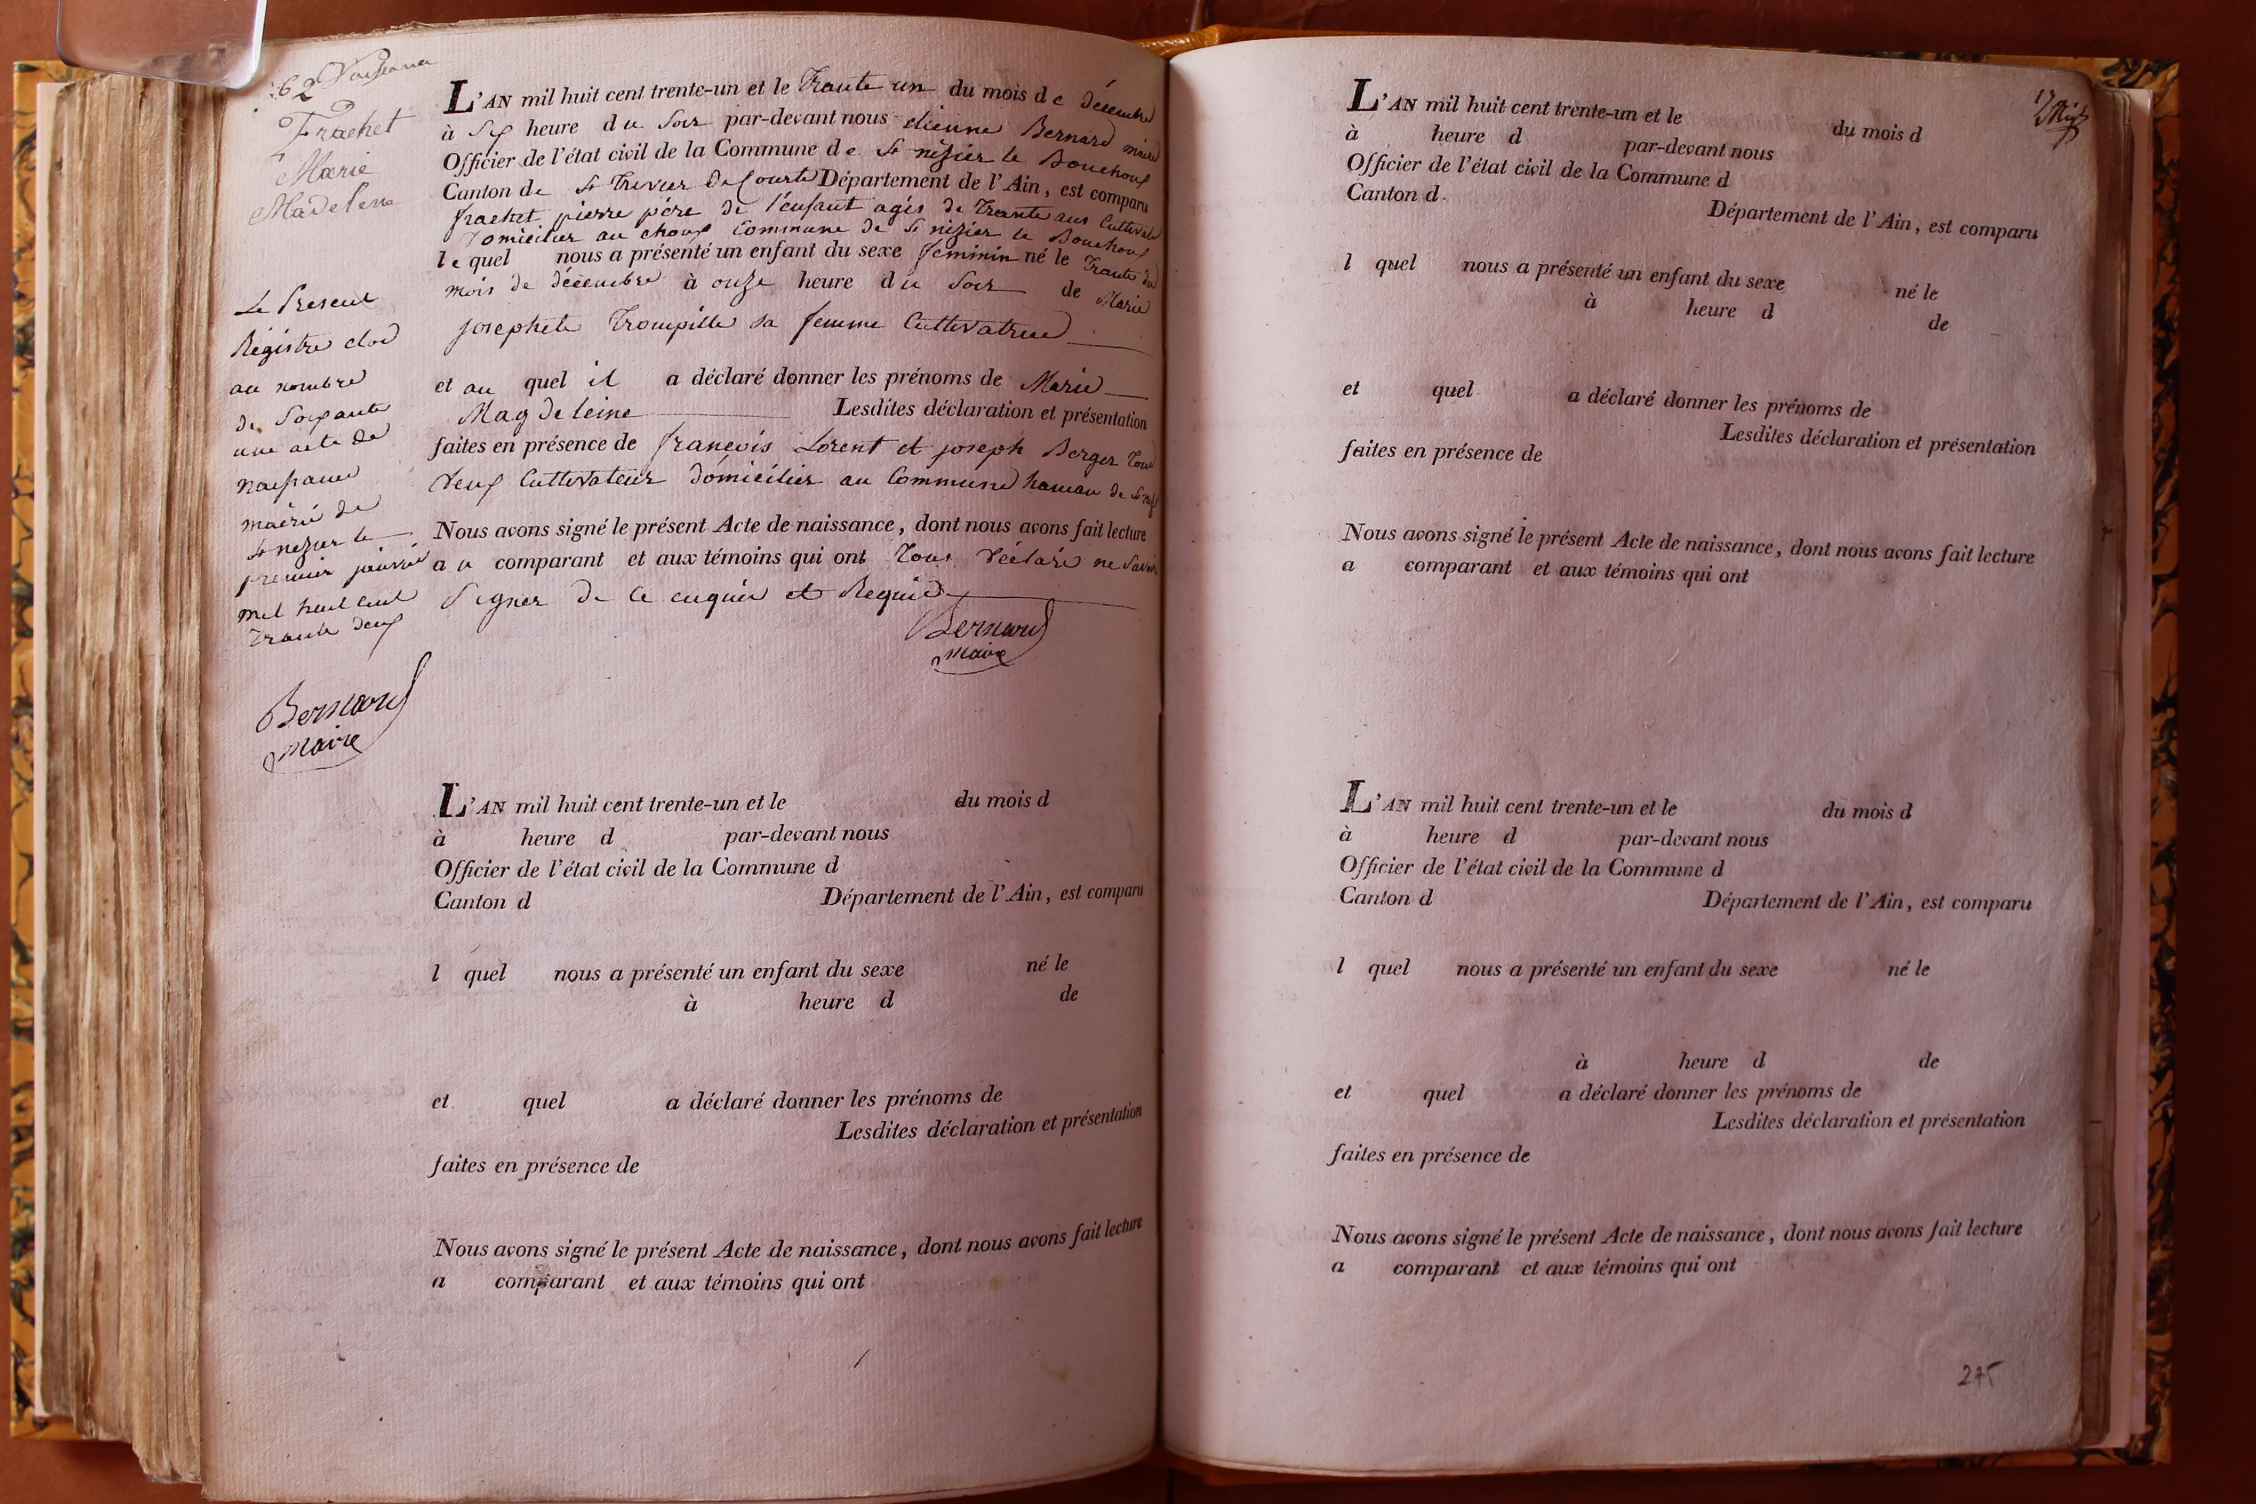 62 Naissance
Frachet
Marie
Madelene
L'AN mil huit cent trente-un et le Trante un du mois de décembre
à Six heure du Soir par-devant nous etienne Bernard maire
Officier de l'état civil de la Commune de St nizier le Bouchoux
Canton de St Trivier De Courte Département de l'Ain, est comparu
frachet pierre pére de l'enfant agés de Trante ans Cultivate
Domicilier au choux Commune de St nizier le Bouchoux
lequel nous a présenté un enfant du sexe feminin né le Trante du
mois de décembre à onze heure du Soir de Marie
josephete Trompille sa femme Cultivatrice
et au quel il a déclaré donner les prénoms de Marie
Magdeleine Lesdites déclaration et présentation
faites en présence de francois Lorent et joseph Berger Tous
Deux Cultivateur domicilier au Commune hameau de St
Nous avons signé le présent Acte de naissance, dont nous avons fait lecture
au comparant et aux témoins qui ont Tous Déclaré ne Savoir
Signer de ce enquis et Requis
Bernard
Maire
Le Present
Régistre clos
au nombre
de Soixante
une acte de
naissance
mairie de
St nezier le
premier janvié
mil huit cent
Trante deux
Bernard
Maire
L'AN mil huit cent trente-un et le du mois d
à heure d par-devant nous
Officier de l'état civil de la Commune d
Canton d Département de l'Ain, est comparu
l quel nous a présenté un enfant du sexe né le
à heure d de
et quel a déclaré donner les prénoms de
Lesdites déclaration et présentation
faites en présence de
Nous avons signé le présent Acte de naissance, dont nous avons fait lecture
a comparant et aux témoins qui ont
17
L'AN mil huit cent trente-un et le du mois d
à heure d par-devant nous
Officier de l'état civil de la Commune d
Canton d. Département de l'Ain, est comparu
l quel nous a présenté un enfant du sexe né le
à heure d de
et quel a déclaré donner les prénoms de
Lesdites déclaration et présentation
faites en présence de
Nous avons signé le présent Acte de naissance, dont nous avons fait lecture
a comparant et aux témoins qui ont
L'AN mil huit cent trente-un et le du mois d
à heure d par-devant nous
Officier de l'état civil de la Commune d
Canton d Département de l'Ain, est comparu
l quel nous a présenté un enfant du sexe né le
à heure d de
et quel a déclaré donner les prénoms de
Lesdites déclaration et présentation
faites en présence de
Nous avons signé le présent Acte de naissance, dont nous avons fait lecture
a comparant et aux témoins qui ont
275